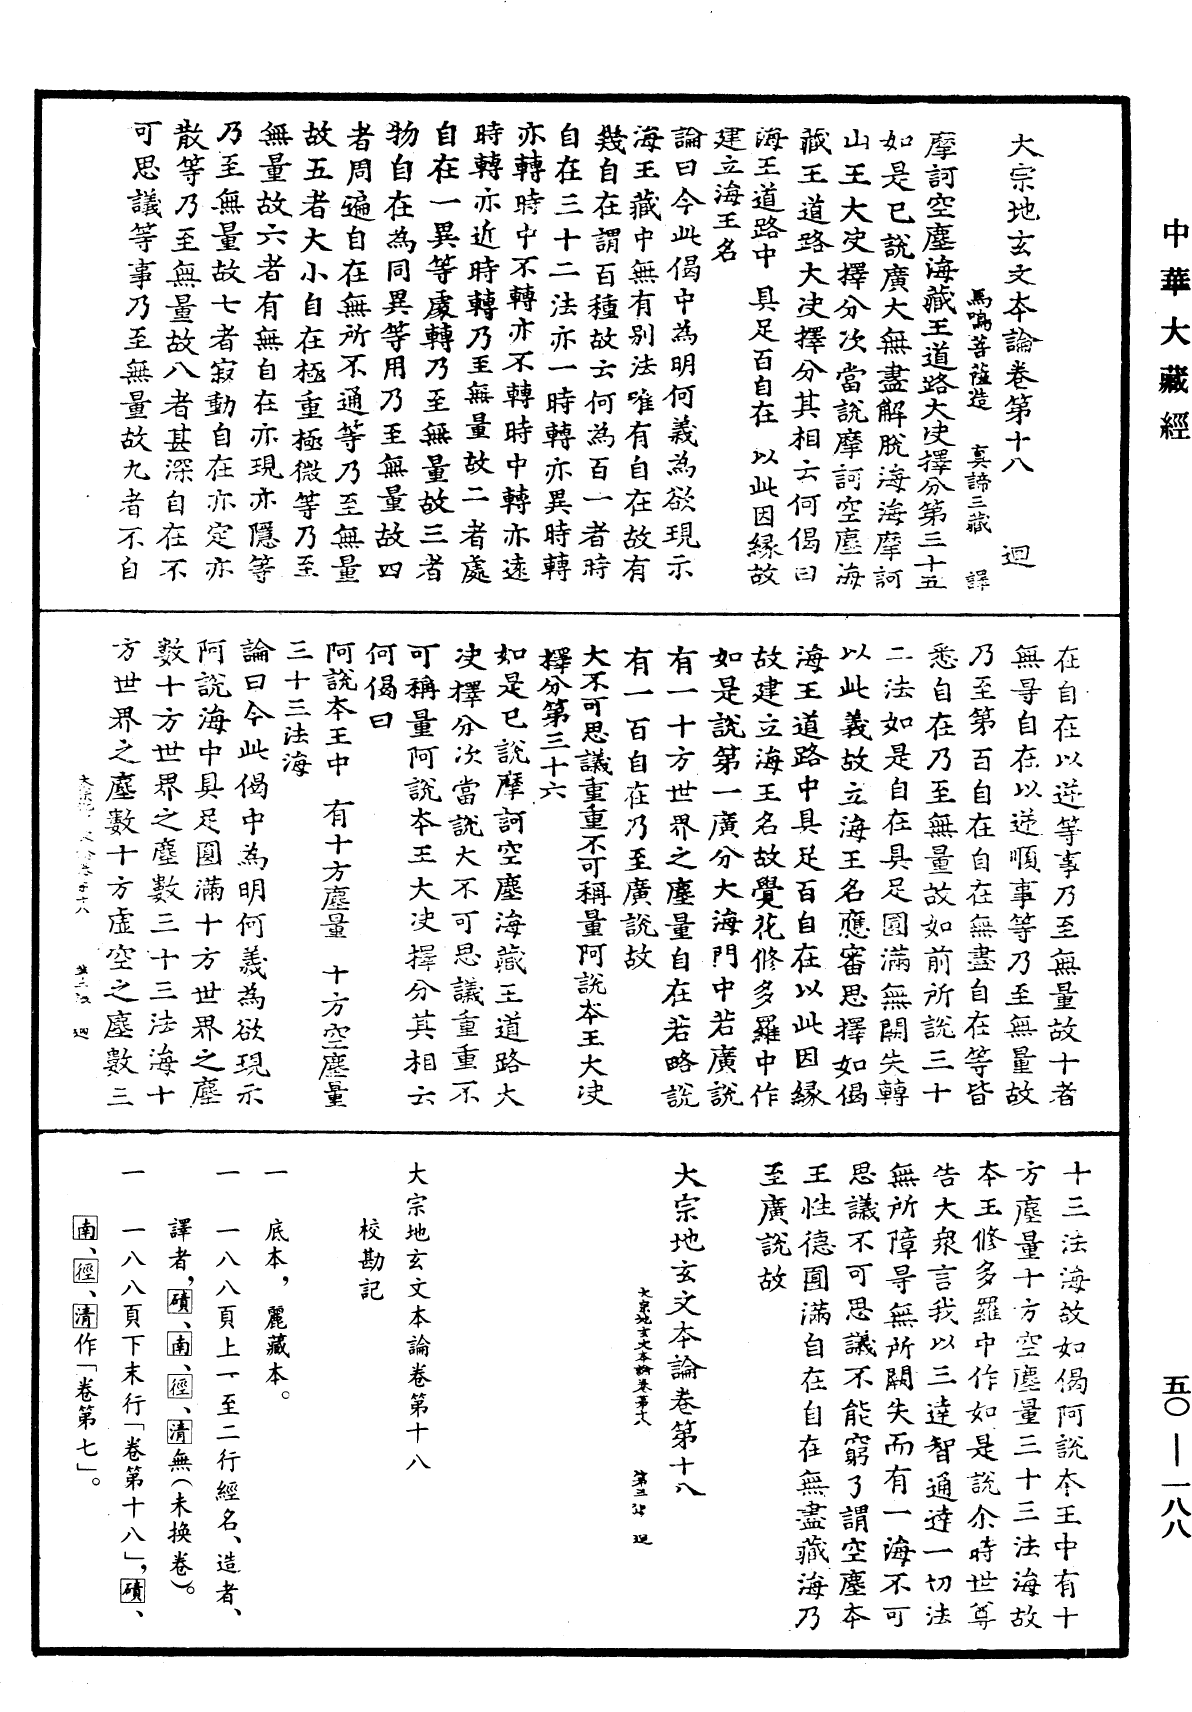 中華大藏經
大宗地玄文本論卷第十八　迴
馬鳴菩薩造　真諦三藏　譯
摩訶空塵海藏王道路大决擇分第三十五
如是已說廣大無盡解脫海海摩訶
山王大决擇分次當說摩訶空塵海
藏王道路大决擇分其相云何偈曰
海王道路中　具足百自在　以此因緣故
建立海王名
論曰今此偈中為明何義為欲現示
海王藏中無有別法唯有自在故有
幾自在謂百種故云何為百一者時
自在三十二法亦一時轉亦異時轉
亦轉時中不轉亦不轉時中轉亦遠
時轉亦近時轉乃至無量故二者處
自在一異等處轉乃至無量故三者
物自在為同異等用乃至無量故四
者周遍自在無所不通等乃至無量
故五者大小自在極重極微等乃至
無量故六者有無自在亦現亦隱等
乃至無量故七者寂動自在亦定亦
散等乃至無量故八者甚深自在不
可思議等事乃至無量故九者不自
在自在以逆等事乃至無量故十者
無㝵自在以逆順事等乃至無量故
乃至第百自在自在無盡自在等皆
悉自在乃至無量故如前所說三十
二法如是自在具足圓滿無闕失轉
以此義故立海王名應審思擇如偈
海王道路中具足百自在以此因緣
故建立海王名故覺花修多羅中作
如是說第一廣分大海門中若廣說
有一十方世界之塵量自在若略說
有一百自在乃至廣說故
大不可思議重重不可稱量阿說本王大决
擇分第三十六
如是已說摩訶空塵海藏王道路大
决擇分次當說大不可思議重重不
可稱量阿說本王大决擇分其相云
何偈曰
阿說本王中　有十方塵量　十方空塵量
三十三法海
論曰今此偈中為明何義為欲現示
阿說海中具足圓滿十方世界之塵
數十方世界之塵數三十三法海十
方世界之塵數十方虛空之塵數三
十三法海故如偈阿說本王中有十
方塵量十方空塵量三十三法海故
本王修多羅中作如是說尒時世尊
告大衆言我以三達智通達一切法
無所障㝵無所闕失而有一海不可
思議不可思議不能窮了謂空塵本
王性德圓滿自在自在無盡藏海乃
至廣說故
大宗地玄文本論卷第十八
大宗地玄文本論卷第十八　第三張　迴
大宗地玄文本論卷第十八
校勘記
一　底本，麗藏本。
一　一八八頁上一至二行經名、造者、
譯者，磧、南、徑、清無（未換卷）。
一　一八八頁下末行「卷第十八」，磧、
南、徑、清作「卷第七」。
五〇—一八八